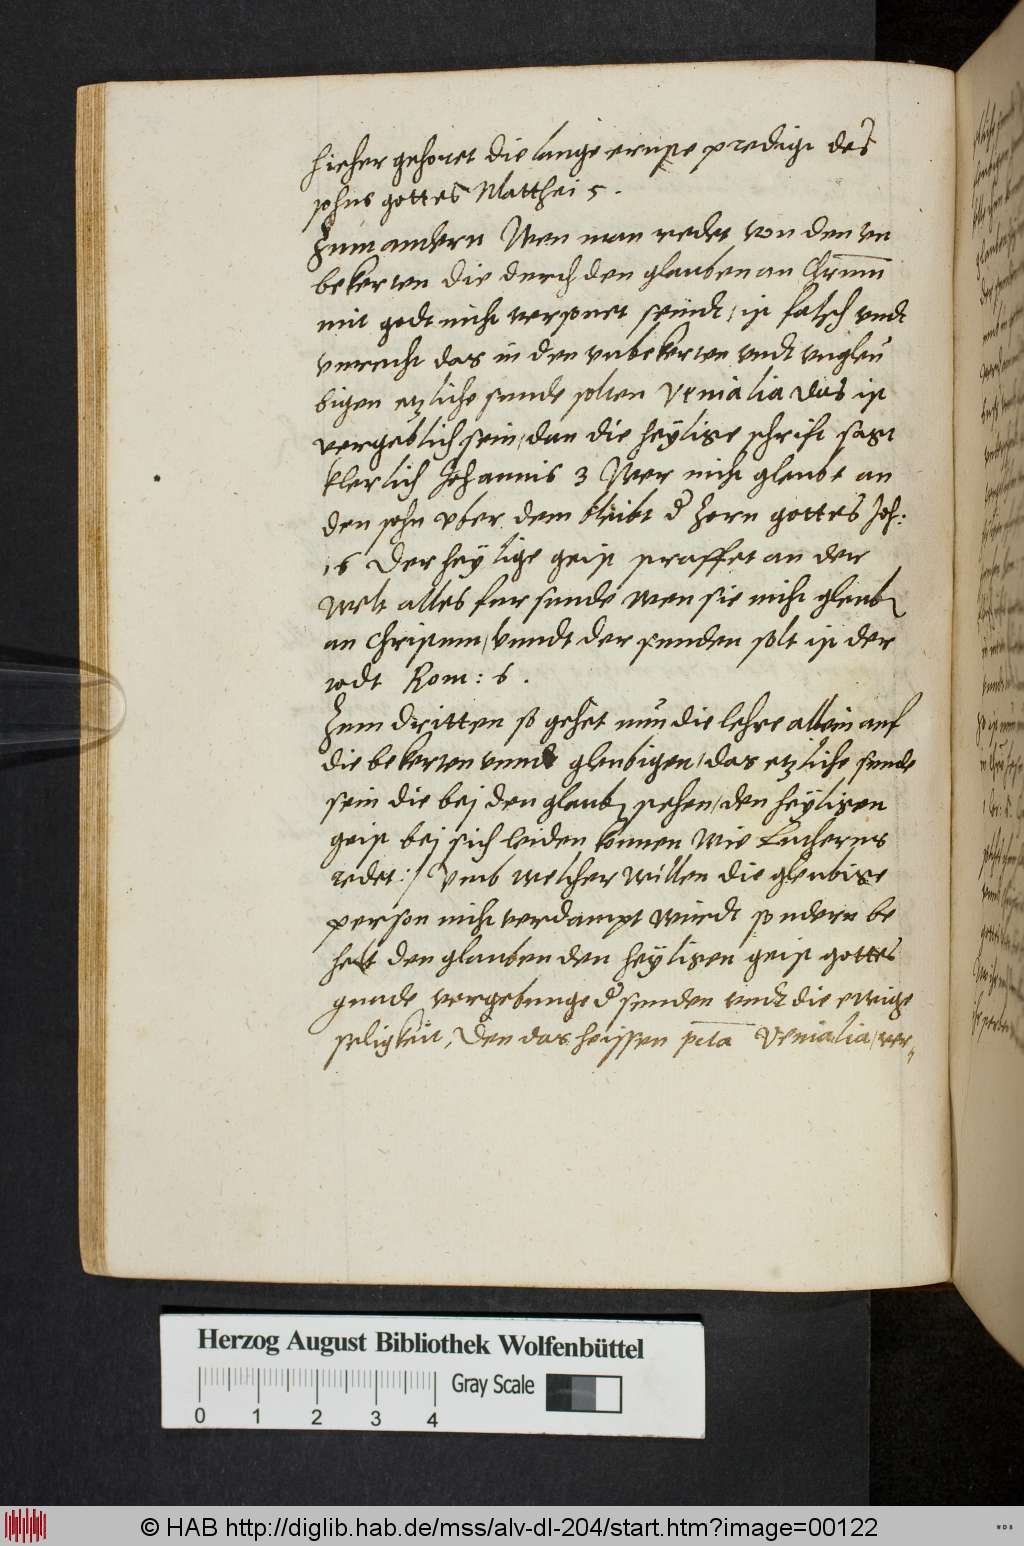 hieher gehoret die lange ernste predigt des
sohns gottes Matthei 5.
Zum andern Wen man redet von den vn
bekerten die durch den glauben an Chrum̄
mit godt nicht versonet seindt, ist falsch vndt
vnrecht das in den vnbekerten vndt vngleu
bigen etzliche sunde solten Venialia das ist
vergeblich sein, dan die heylige schrift sagt
klerlich Johannis 3 Wer nicht gleubt an
den sohn vber dem bleibt d Zorn gottes Joh:
16 Der heylige geist straffet an der
Welt alles fur sunde wen sie nicht gleuben
an Christum, vnndt der sunden solt ist der
todt Rom: 6.
Zum dritten so gehet nun die lehre allein auf
die bekerten vnnd gleubigen, das etzliche sunde
sein die bej den glauben stehen, den heyligen
geist bej sich leiden konnen wie Lutherus
redet:/ Vmb welcher willen die gleubige
person nicht verdampt wurdt sondern be
helt den glauben den heyligen geist gottes
gnade vergebunge d sunden vndt die ewige
seligkeit, Den das heissen pcta Venialia, ver-
Herzog August Bibliothek Wolfenbüttel
Gray Scale
0 1 2 3 4
© HAB http://diglib.hab.de/mss/alv-dl-204/start.htm?image=00122